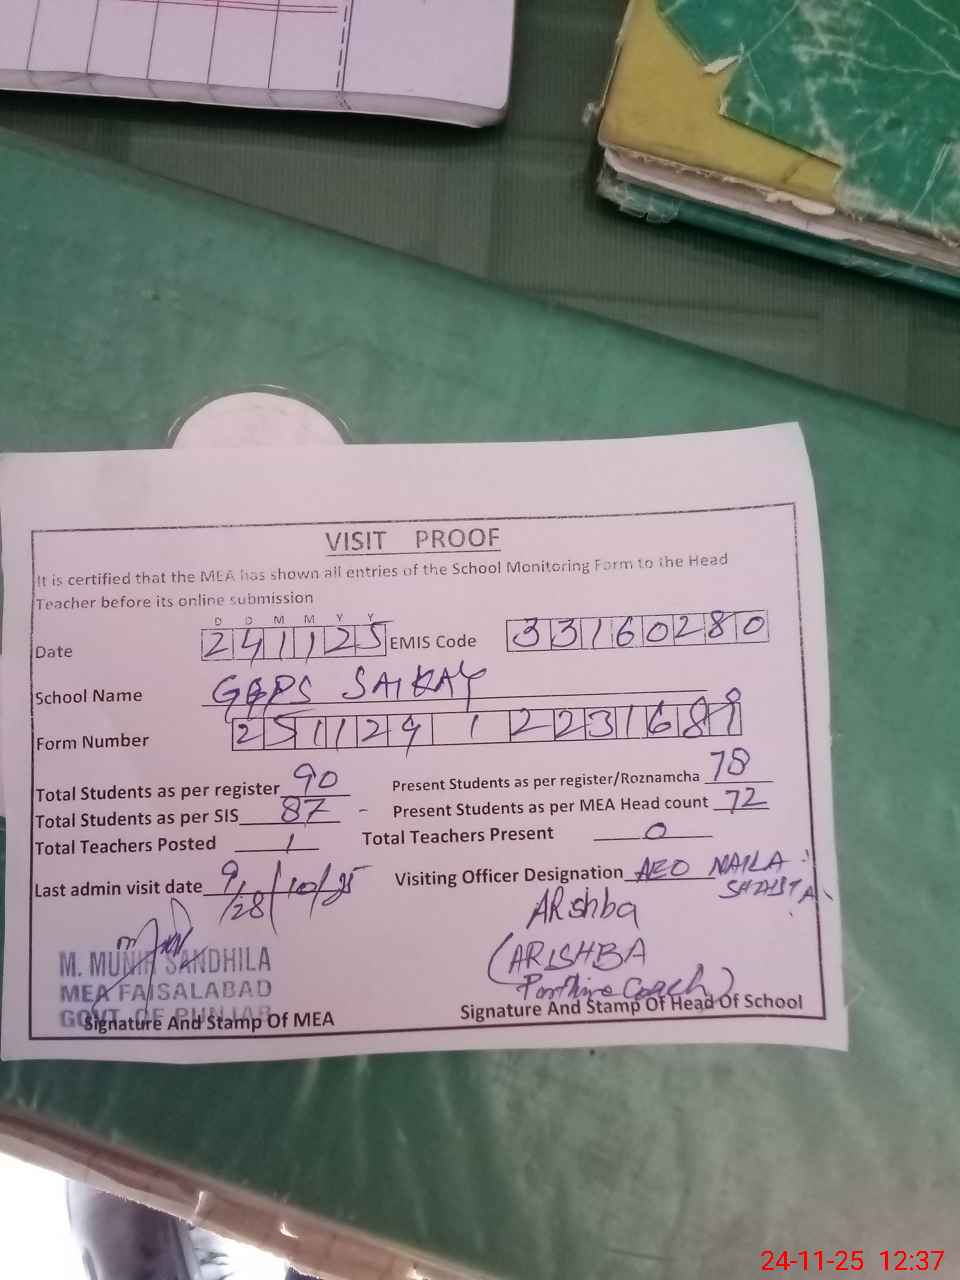 VISIT PROOF
It is certified that the MEA has shown all entries of the School Monitoring Form to the Head
Teacher before its online submission
D D M M Y Y
Date 241125 EMIS Code 33160280
School Name GGPS SAIKAY
Form Number 251124 1 2231689
Total Students as per register 90 Present Students as per register/Roznamcha 78
Total Students as per SIS 87 - Present Students as per MEA Head count 72
Total Teachers Posted 1 Total Teachers Present 0
Last admin visit date 28/10/25 Visiting Officer Designation AEO NAILA
SHAISTA
ARshba
M. MUNIR SANDHILA (ARISHBA
MEA FAISALABAD Parttime Coach)
GOVT. OF PUNJAB
Signature And Stamp Of MEA Signature And Stamp Of Head Of School
24-11-25 12:37